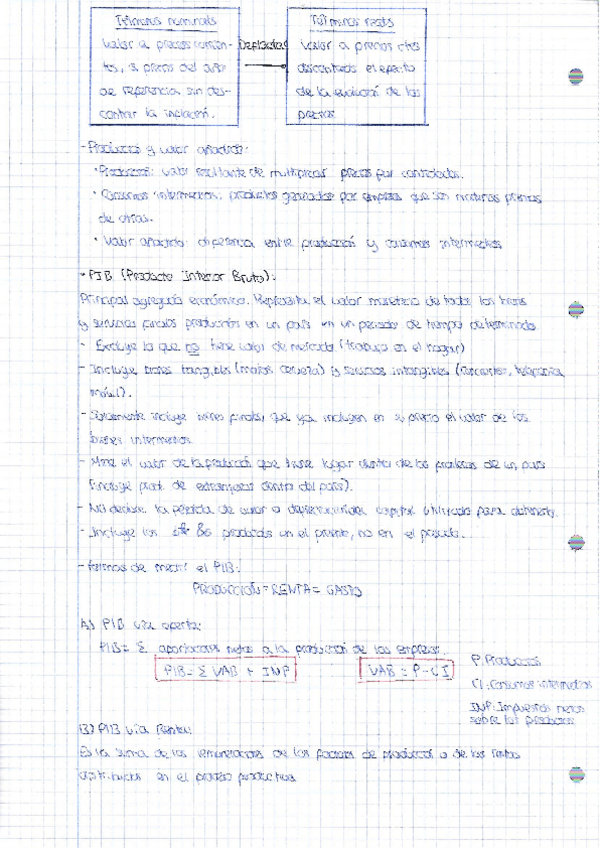 Términos nominales
Valor a precios corrien-
tes, a precios del año
de referencia sin des-
contar la inflación.
Deflactar
Términos reales
Valor a precios ctes
descontado el efecto
de la evolución de los
precios
- Producción y valor añadido:
· Producción: valor resultante de multiplicar precios por cantidades.
· Consumos intermedios: productos generados por empresas que son materias primas
de otras.
· Valor añadido: diferencia entre producción y consumos intermedios
- PIB (Producto Interior Bruto):
Principal agregado económico. Representa el valor monetario de todos los bienes
y servicios finales producidos en un país en un periodo de tiempo determinado
- Excluye lo que no tiene valor de mercado (trabajo en el hogar)
- Incluye bienes tangibles (motos, cerveza) y servicios intangibles (conciertos, telefonía
móvil).
- Solamente incluye bienes finales, que ya incluyen en su precio el valor de los
bienes intermedios.
- Mide el valor de la producción que tiene lugar dentro de las fronteras de un país
(incluye prod. de extranjeros dentro del país).
- No deduce la pérdida de valor o depreciación del capital utilizado para obtenerlo.
- Incluye los producidos en el presente, no en el pasado.
- Formas de medir el PIB:
PRODUCCIÓN = RENTA = GASTO
A) PIB vía oferta:
PIB = Σ aportaciones netas a la producción de las empresas.
PIB = Σ VAB + INP
VAB = P - CI
P: Producción
CI: Consumos intermedios
INP: Impuestos netos
sobre los productos
B) PIB vía Renta:
Es la suma de las remuneraciones de los factores de producción o de las rentas
distribuidas en el proceso productivo